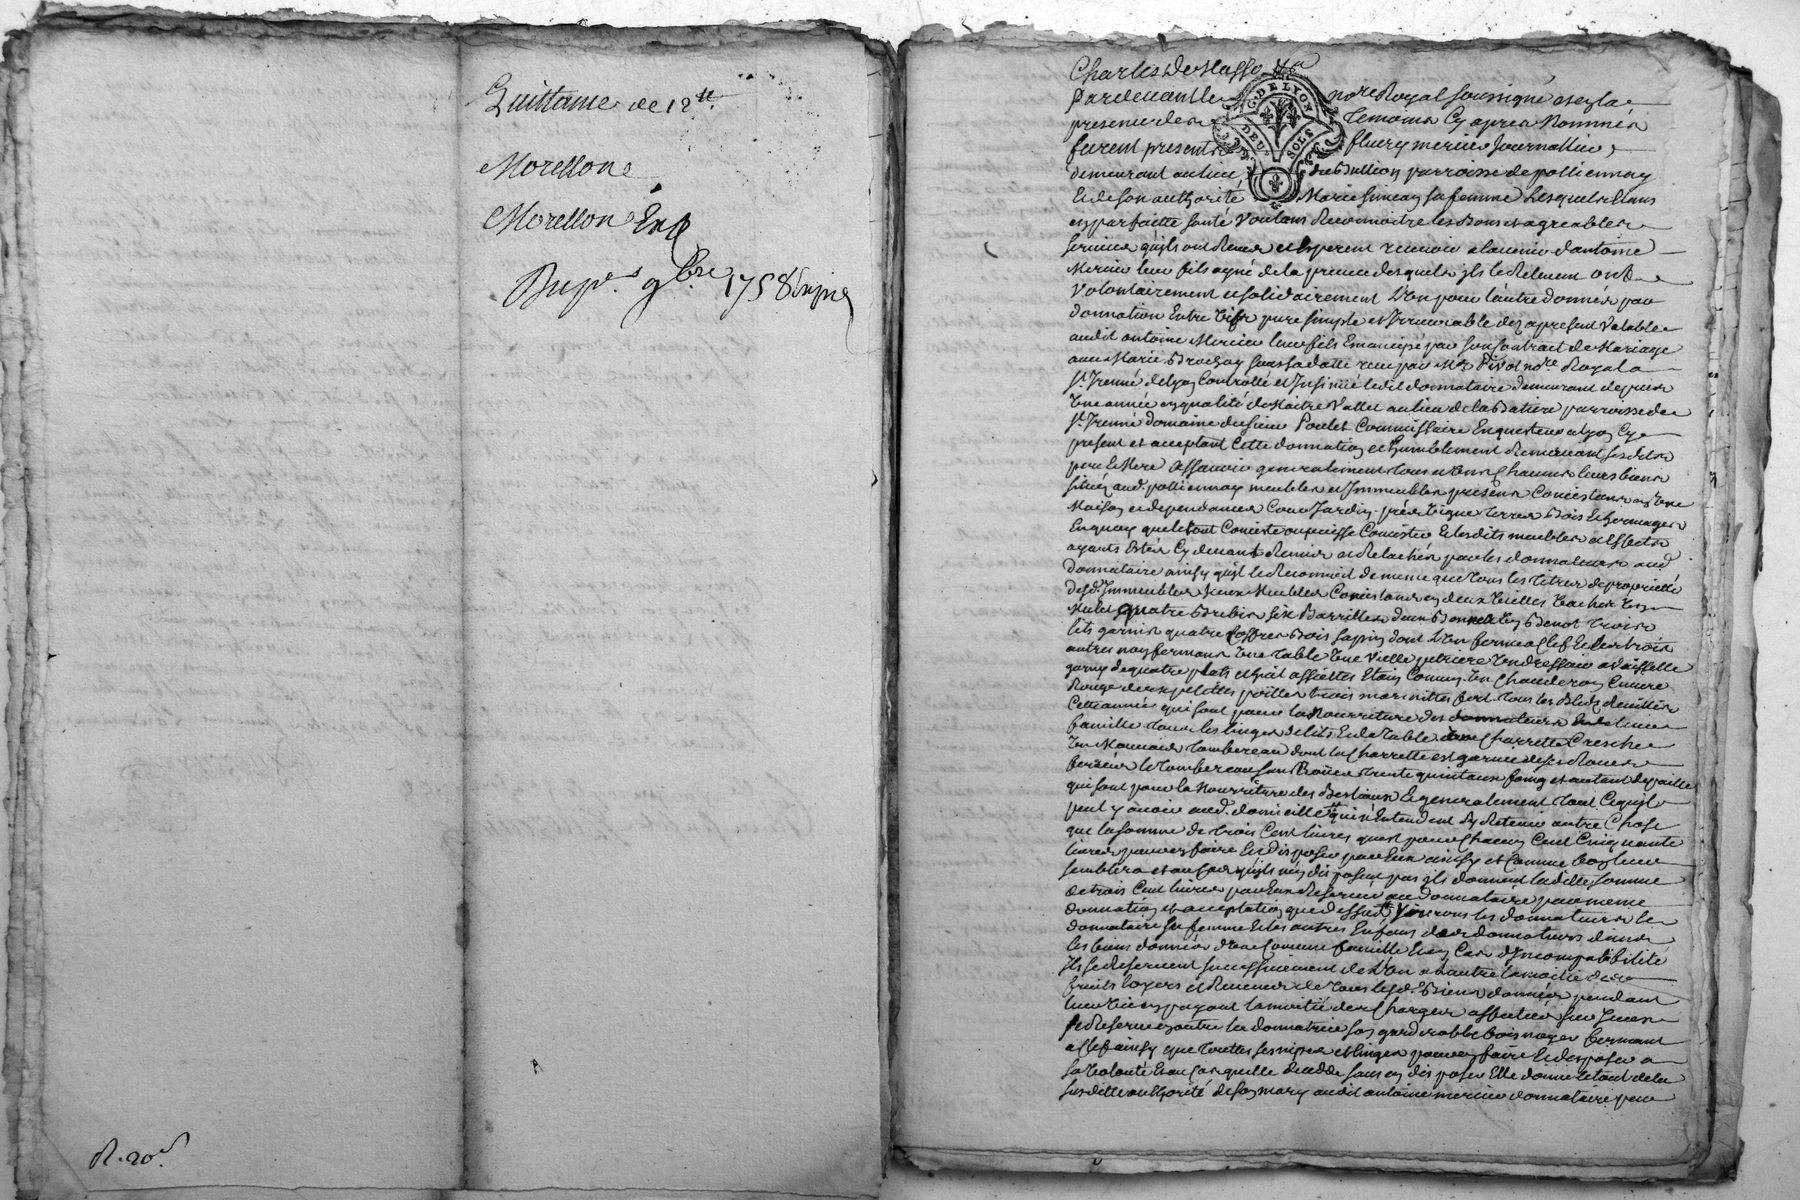 Quittance de 12 tt
Morellon
Morellon
9bre 1758
R. 20 s
Charles De Masso
Pardevant le no.re Royal soussigné et en la
presence de temoins cy apres nommés
furent presents fleury mercier journallier
demeurant au lieu du Bullion parroisse de polliennay
Et de son authorité Marie simean sa femme Lesquels dans
en parfaitte santé voulans Reconnoitre les bons et agreables
services qu'ils ont Receus et Esperent recevoir a l'avenir d'antoine
Mercier leur fils ayné de la preuve desquels ils le Relevent ont
Volontairement et solidairement L'un pour l'autre donnés par
donnation Entre vifs pure simple et Irrevocable dez a present valable
audit antoine Mercier leur fils Emancipé par son Contract de Mariage
avec Marie Brochay sous sa datte receu par Me no.re Royal a
St Irenné de lyon Controllé et Insinué ledit donnataire demeurant depuis
Une année en qualité de Maitre Vallet au lieu de la Batiere parroisse de
St Irenné domaine du sieur Poulet Commissaire Enquesteur a lyon Cy
present et acceptant Cette donnation et humblement Remerciant sesdits
pere Et Mere assavoir generalement tous et Uns Chacuns leurs biens
situés aud. polliennay meubles et Immeubles presents Consistans en Une
Maison et dependances Cour Jardin prés vigne terres Bois Et hermages
En quoy que le tout Consiste ou puisse Consister Et lesdits meubles et Effects
ayants Estés Cy devant Remis et Relachés par les donnateurs aud
donnataire ainsy qu'il le Reconnoit de meme que tous les titres de proprietté
desd. Immeubles yceux Meubles Consistans en deux vielles vaches Un
Mulet quatre Brebis six Barrilles deux Un Benot trois
lits garnis quatre coffres Bois sapin dont L'un ferme a clef Et les trois
autres non fermans Une table Une vielle petriere Un dressoir a vaisselle
garny de quatre plats et huit assiettes Etain Commun Un Chauderon Cuivre
Rouge deux petittes poilles trois marmittes fert tous les Bleds Recuillis
Cette année qui sont pour la Nourriture des donnateurs Et de leur
famille tous les linges de lits Et de table Une Charrette Creiche
Un tombereau dont la Charrette est garnie de ses Roues
ferrées le tombereau sans Roües trente quintaux foing et autant de paille
qui sont pour la Nourriture des Bestiaux Et generalement tout Ce qu'il
peut y avoir aud. domicille qui n'Entendent sy Retenir autre Chose
que la somme de trois Cent livres quest pour Chacun Cent Cinquante
livres pouvoir faire Et disposer par Eux ainsy et Comme bon leur
semblera et au Cas qu'ils n'en disposent pas ils donnent laditte somme
de trois Cent livres par Eux Reservée au donnataire par meme
donnation et acceptation que dessus Vivront les donnateurs le
donnataire sa femme Et les autres Enfans des donnateurs dans
les biens donnés d'Une Commune famille Et en Cas d'Incompatibilité
Ils se Reservent successivement de L'un a l'autre la moitié des
fruits loyers et Revenus de tous lesd. Biens donnés pendant
leur vie en payant la moitié des Charges affectées sur Iceux
se Reserve En outre la donnatrice son garderobbe bois noyer fermant
a clef ainsy que touttes ses nipes et linges pouvoir faire Et disposer a
sa volonté Et au Cas qu'elle decedde sans en disposer Elle donne le tout de la
susditte authorité de son mary audit antoine mercier donnataire pour